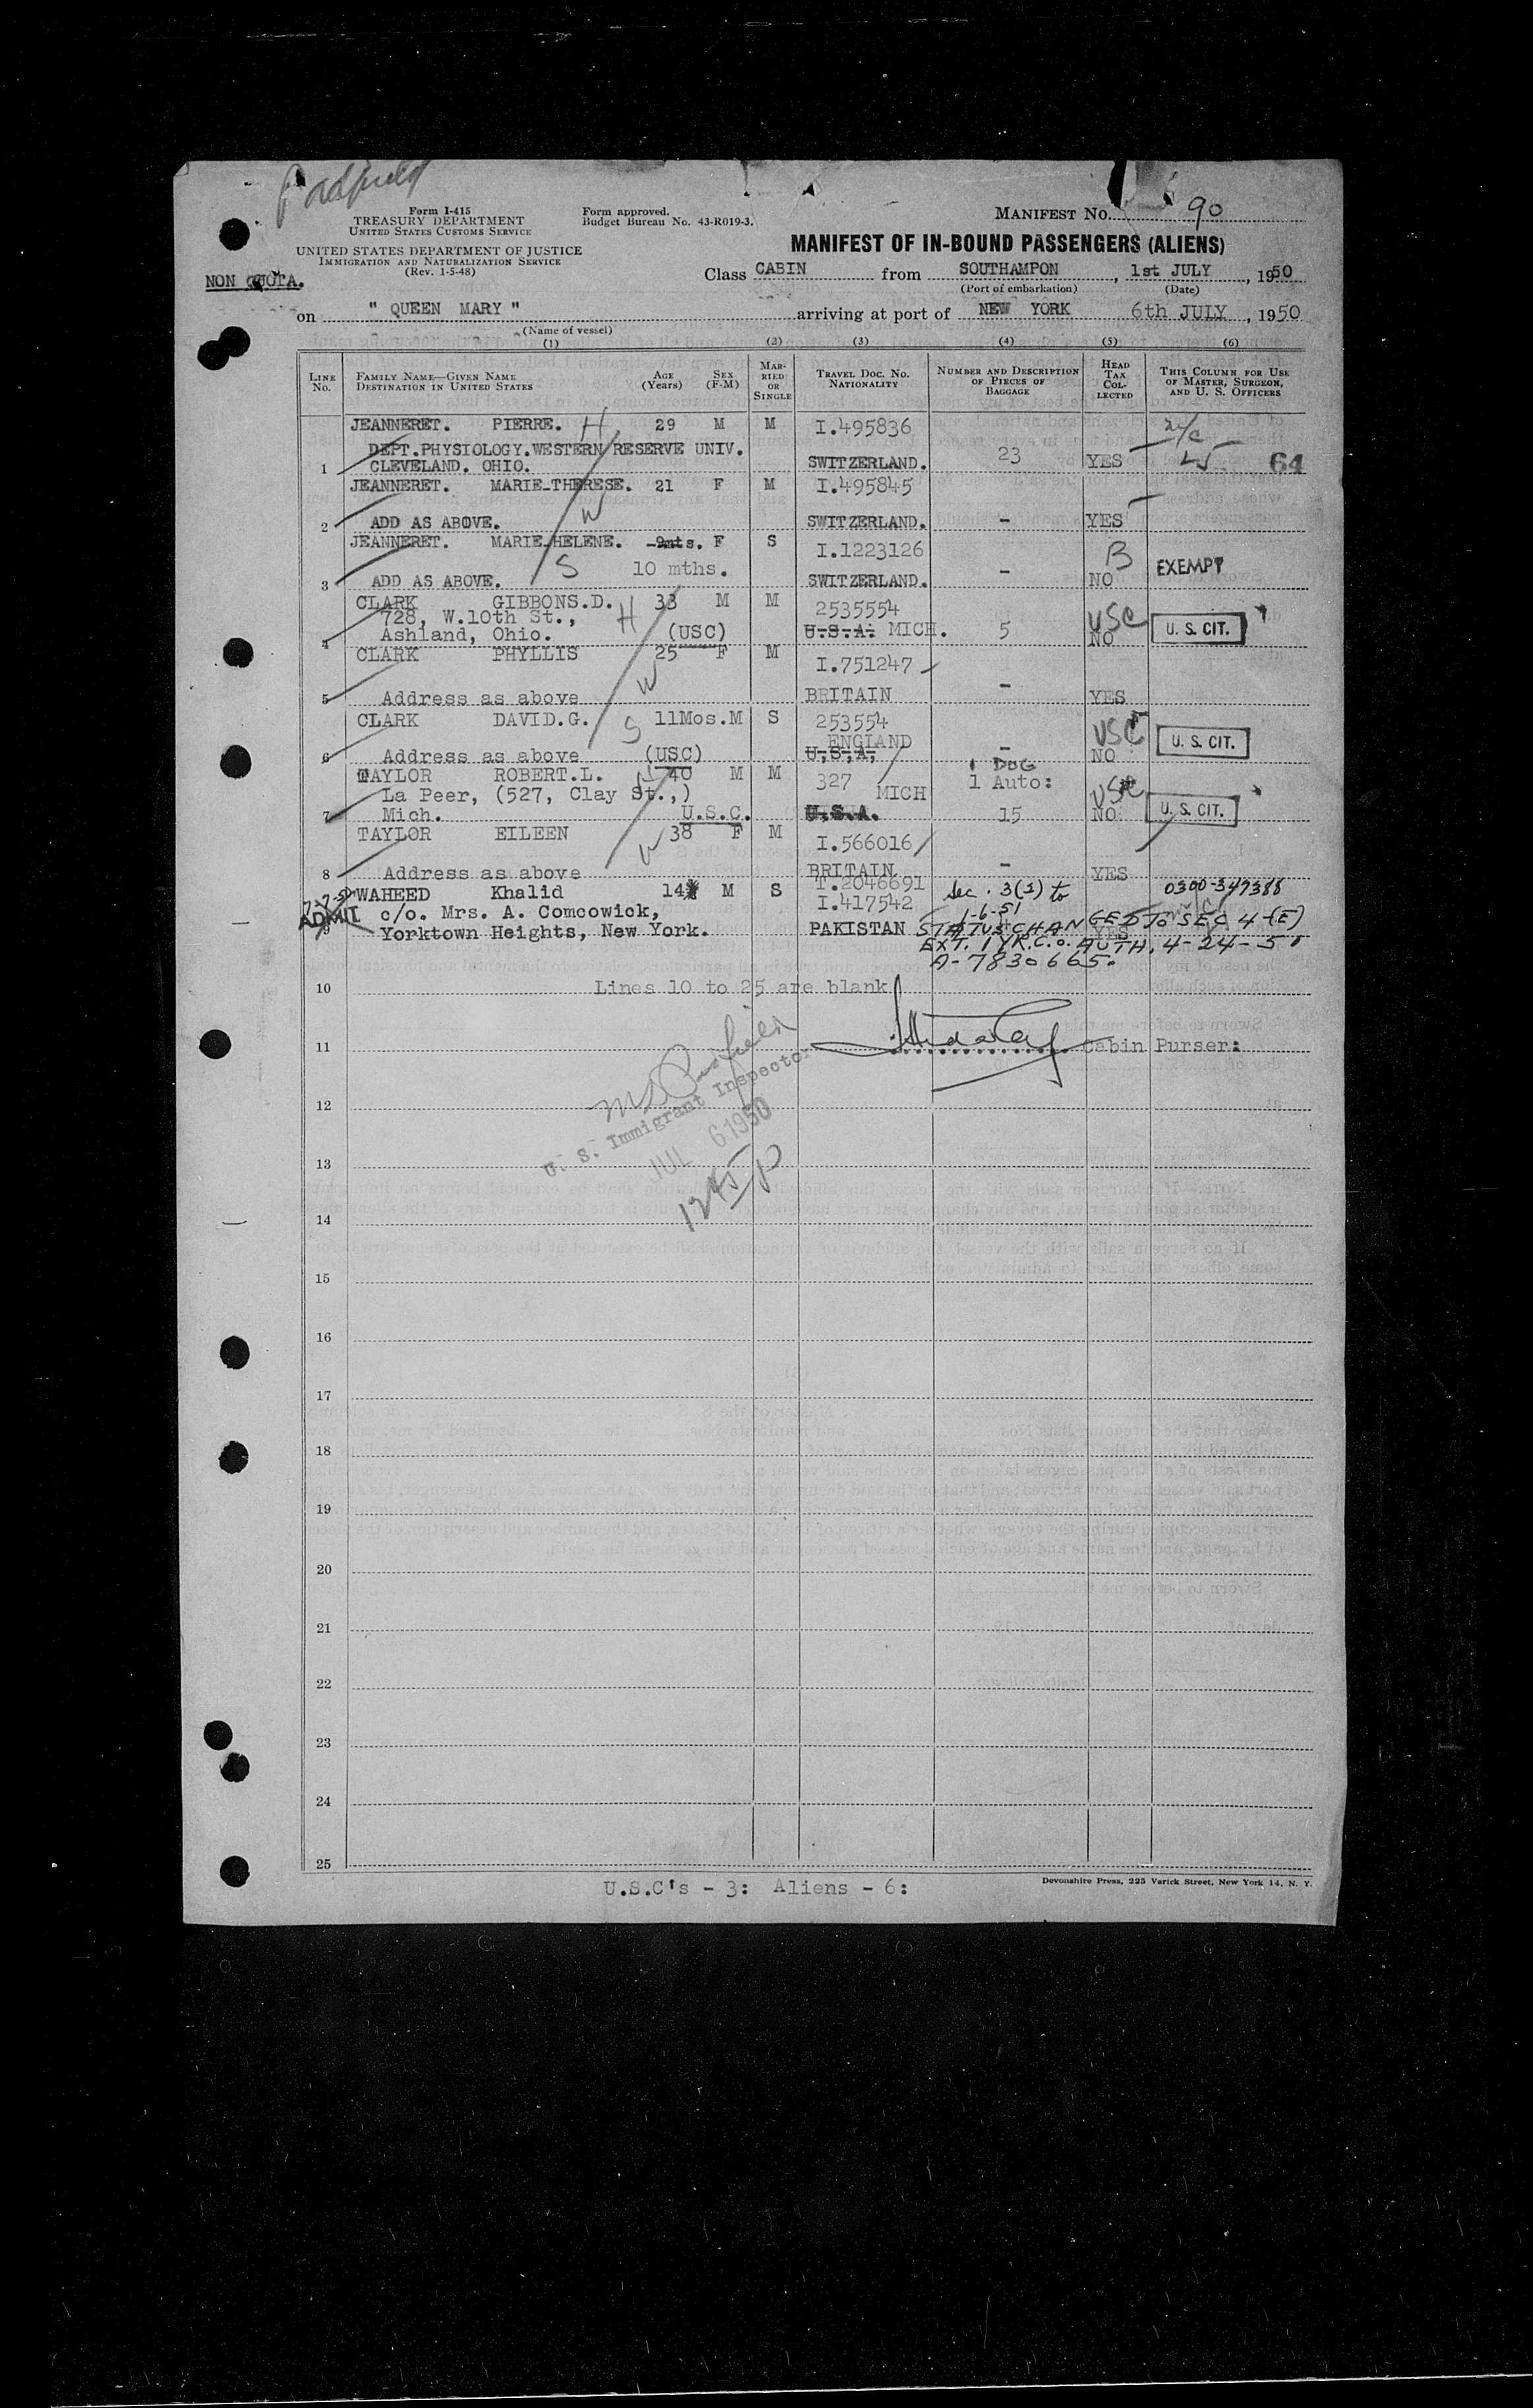 Form I-415
TREASURY DEPARTMENT
UNITED STATES CUSTOMS SERVICE
UNITED STATES DEPARTMENT OF JUSTICE
IMMIGRATION AND NATURALIZATION SERVICE
(Rev. 1-5-48)
Form approved.
Budget Bureau No. 43-R019-3.
MANIFEST No. 90
MANIFEST OF IN-BOUND PASSENGERS (ALIENS)
NON QUOTA.
Class CABIN from SOUTHAMPON, 1st JULY, 1950
(Port of embarkation) (Date)
on " QUEEN MARY " arriving at port of NEW YORK 6th JULY, 1950
(Name of vessel)
(1) (2) (3) (4) (5) (6)
LINE No. FAMILY NAME—GIVEN NAME DESTINATION IN UNITED STATES AGE (Years) SEX (F-M) MARRIED OR SINGLE TRAVEL DOC. NO. NATIONALITY NUMBER AND DESCRIPTION OF PIECES OF BAGGAGE HEAD TAX COLLECTED THIS COLUMN FOR USE OF MASTER, SURGEON, AND U. S. OFFICERS
JEANNERET. PIERRE. H 29 M M I.495836
DEPT.PHYSIOLOGY.WESTERN RESERVE UNIV.
1 CLEVELAND. OHIO. SWITZERLAND. 23 YES 64
JEANNERET. MARIE-THERESE. 21 F M I.495845
2 ADD AS ABOVE. W SWITZERLAND. - YES
JEANNERET. MARIE-HELENE. 9mts. F S I.1223126 B EXEMPT
10 mths.
3 ADD AS ABOVE. S SWITZERLAND. - NO
CLARK GIBBONS.D. 33 M M 2535554 USC
728, W.10th St., H
4 Ashland, Ohio. (USC) U.S.A. MICH. 5 NO U. S. CIT.
CLARK PHYLLIS 25 F M I.751247
5 Address as above W BRITAIN - YES
CLARK DAVID.G. S 11Mos. M S 253554 USC
ENGLAND
6 Address as above (USC) U,S,A, - NO U. S. CIT.
TAYLOR ROBERT.L. 40 M M 327 1 DOG
1 Auto:
La Peer, (527, Clay St.,) MICH
7 Mich. U.S.C. U.S.A. 15 NO U. S. CIT.
TAYLOR EILEEN 38 F M I.566016
8 Address as above W BRITAIN - YES
WAHEED Khalid 14 M S T.2046691 Sec. 3(2) to 0300-347388
I.417542 1-6-51
ADMIT c/o. Mrs. A. Comcowick,
9 Yorktown Heights, New York. PAKISTAN STATUS CHANGED TO SEC 4-(E) YES
EXT. 1 YR. C.O. AUTH. 4-24-51
A-7830665.
10 Lines 10 to 25 are blank
11 Cabin Purser:
12
U. S. Immigrant Inspector
JUL 6 1950
13
14
15
16
17
18
19
20
21
22
23
24
25
U.S.C's - 3: Aliens - 6:
Devonshire Press, 225 Varick Street, New York 14, N. Y.